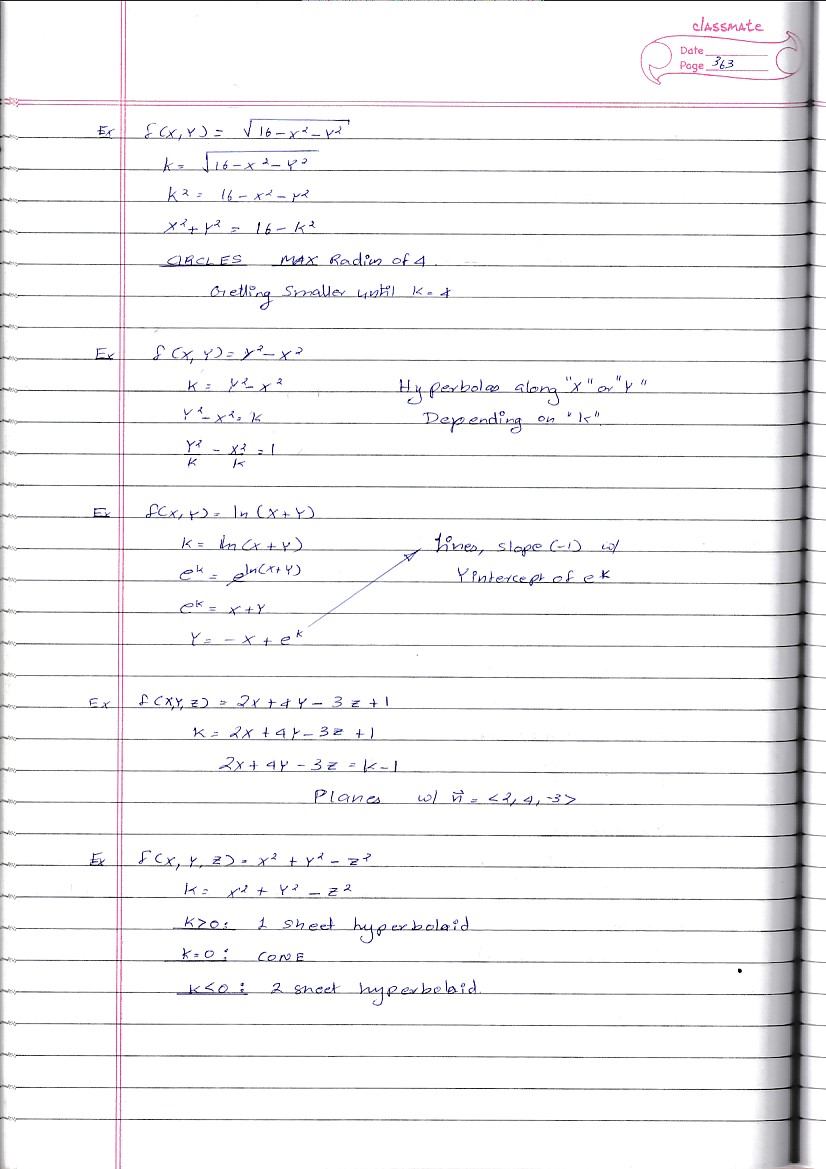 classmate
Date
Page 363
Ex f(x,y) = √16-x²-y²
k = √16-x²-y²
k² = 16-x²-y²
x²+y² = 16-k²
CIRCLES MAX Radius of 4.
Getting Smaller until k=4
Ex f(x,y) = y²-x²
k = y²-x² Hyperbolas along "x" or "y"
y²-x²=k Depending on "k".
y²/k - x²/k = 1
Ex f(x,y) = ln(x+y)
k = ln(x+y) Lines, slope (-1) w/
e^k = e^ln(x+y) Y intercept of e^k
e^k = x+y
y = -x+e^k
Ex f(x,y,z) = 2x+4y-3z+1
k = 2x+4y-3z+1
2x+4y-3z = k-1
Planes w/ n⃗ = <2,4,-3>
Ex f(x,y,z) = x²+y²-z²
k = x²+y²-z²
k>0: 1 sheet hyperbolaid
k=0: CONE
k<0: 2 sheet hyperbolaid.